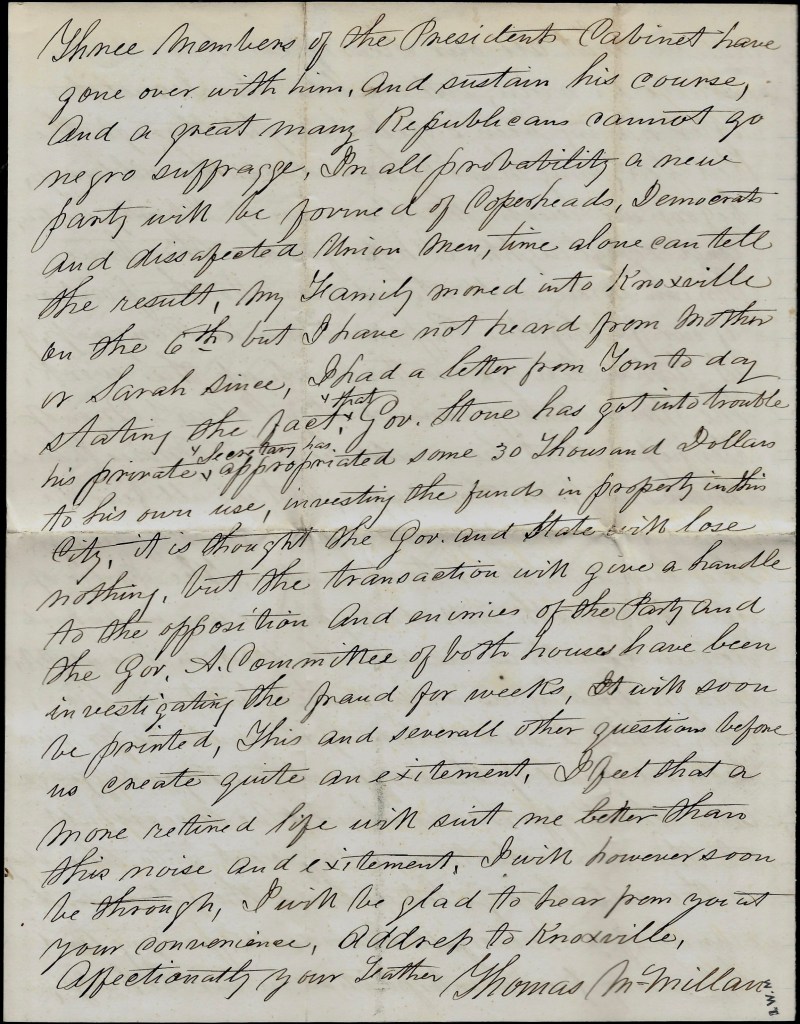 Three Members of the Presidents Cabinet have
gone over with him, And sustain his course,
And a great many Republicans cannot go
negro suffragge, In all probability a new
party will be formed of Coperheads, Democrats
and dissafected Union Men, time alone can tell
the result, My Family moved into Knoxville
on the 6th but I have not heard from Mother
or Sarah since, I had a letter from Tom to day
stating the fact, that Gov. Stone has got into trouble
his private Secretary has appropriated some 30 Thousand Dollars
to his own use, investing the funds in property in this
City, it is thought the Gov. and State will lose
nothing, but the transaction will give a handle
to the opposition And enimies of the Party and
the Gov, A. Committee of both houses have been
investigating the fraud for weeks, It will soon
be printed, This and severall other questions before
us create quite an exitement, I feel that a
more retired life will suit me better than
this noise and exitement, I will however soon
be through, I will be glad to hear from you at
your convenience, Address to Knoxville,
Affectionatly your Father Thomas McMillan
R.W.M.